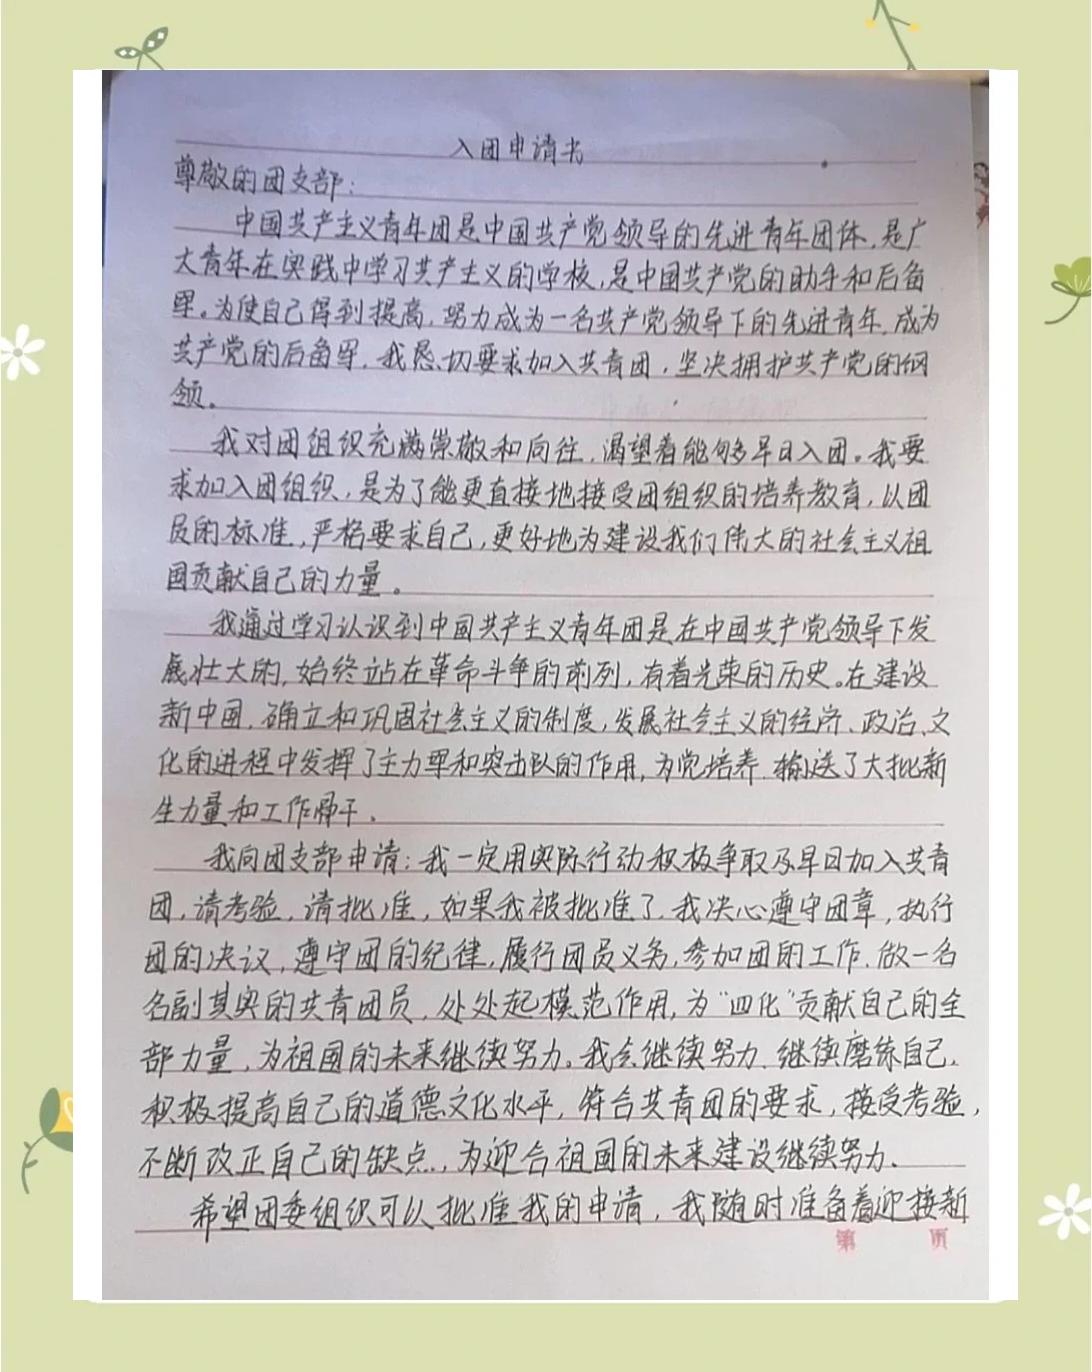 入团申请书
尊敬的团支部：
中国共产主义青年团是中国共产党领导的先进青年团体，是广
大青年在实践中学习共产主义的学校，是中国共产党的助手和后备
军。为使自己得到提高，努力成为一名共产党领导下的先进青年，成为
共产党的后备军，我恳切要求加入共青团，坚决拥护共产党的纲
领。
我对团组织充满崇敬和向往，渴望着能够早日入团。我要
求加入团组织，是为了能更直接地接受团组织的培养教育，以团
员的标准，严格要求自己，更好地为建设我们伟大的社会主义祖
国贡献自己的力量。
我通过学习认识到中国共产主义青年团是在中国共产党领导下发
展壮大的，始终站在革命斗争的前列，有着光荣的历史。在建设
新中国，确立和巩固社会主义的制度，发展社会主义的经济、政治、文
化的进程中发挥了主力军和突击队的作用，为党培养、输送了大批新
生力量和工作骨干。
我向团支部申请：我一定用实际行动积极争取及早日加入共青
团，请考验，请批准，如果我被批准了，我决心遵守团章，执行
团的决议，遵守团的纪律，履行团员义务，参加团的工作，做一名
名副其实的共青团员，处处起模范作用，为“四化”贡献自己的全
部力量，为祖国的未来继续努力。我会继续努力，继续磨练自己，
积极提高自己的道德文化水平，符合共青团的要求，接受考验，
不断改正自己的缺点，为迎合祖国的未来建设继续努力、
希望团委组织可以批准我的申请，我随时准备着迎接新
第 页